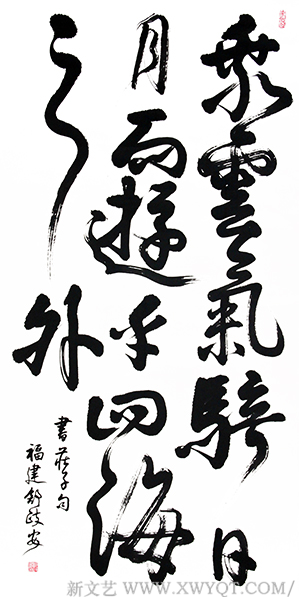 乘雲氣騎日
月而遊乎四海
之外
書莊子句
福建
新文艺 WWW.XWYQ1.COM